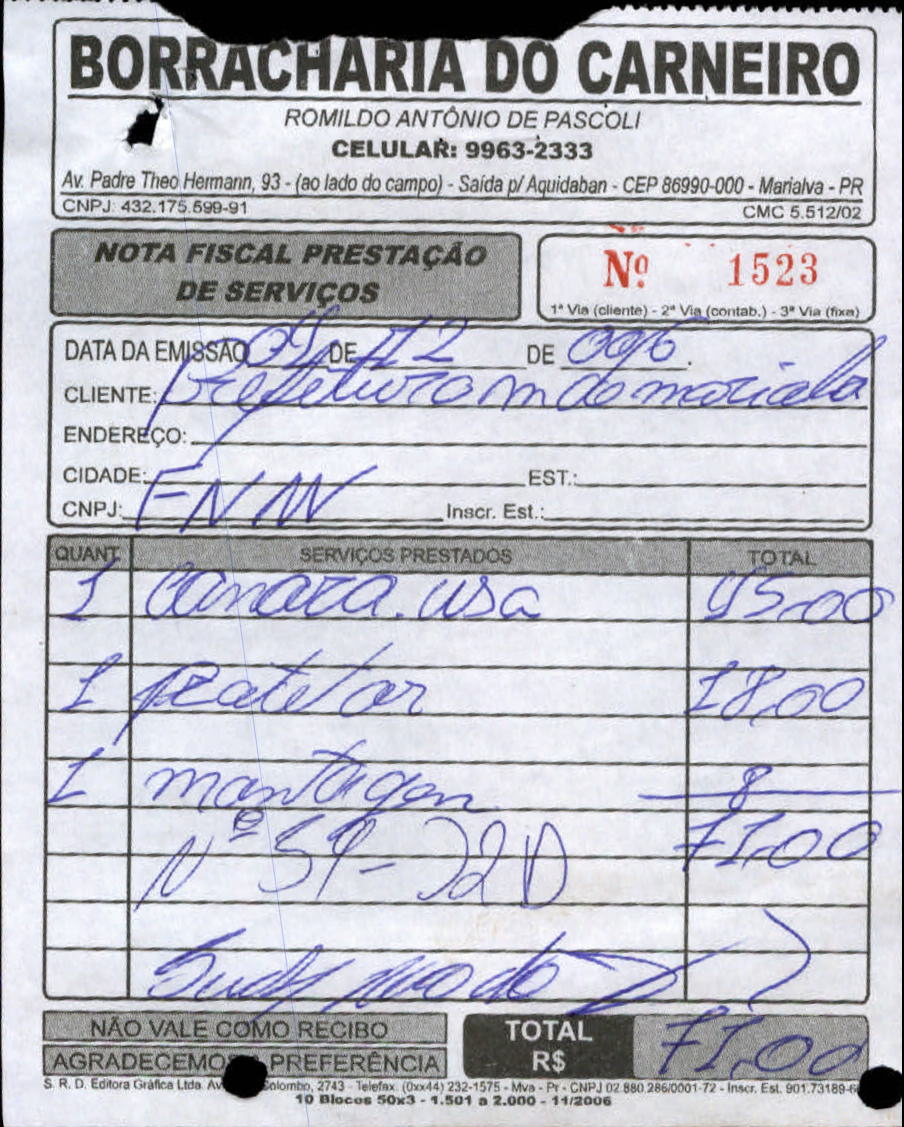 BORRACHARIA DO CARNEIRO
ROMILDO ANTÔNIO DE PASCOLI
CELULAR: 9963-2333
Av. Padre Theo Hermann, 93 - (ao lado do campo) - Saída p/ Aquidaban - CEP 86990-000 - Marialva - PR
CNPJ: 432.175.599-91 CMC 5.512/02
NOTA FISCAL PRESTAÇÃO
DE SERVIÇOS
Nº 1523
1ª Via (cliente) - 2ª Via (contab.) - 3ª Via (fixa)
DATA DA EMISSÃO DE 12 DE 006
CLIENTE: Prefeitura m de marialva
ENDEREÇO:
CIDADE: EST.:
CNPJ: Inscr. Est.:
QUANT. SERVIÇOS PRESTADOS TOTAL
1 Camara usa 45,00
1 18,00
1 montagen 8
71,00
Nº
TOTAL
R$ 71,00
NÃO VALE COMO RECIBO
AGRADECEMOS PREFERÊNCIA
S. R. D. Editora Gráfica Ltda. Av. Colombo, 2743 - Telefax. (0xx44) 232-1575 - Mva - Pr - CNPJ 02.880.286/0001-72 - Inscr. Est. 901.73189-
10 Blocos 50x3 - 1.501 a 2.000 - 11/2006